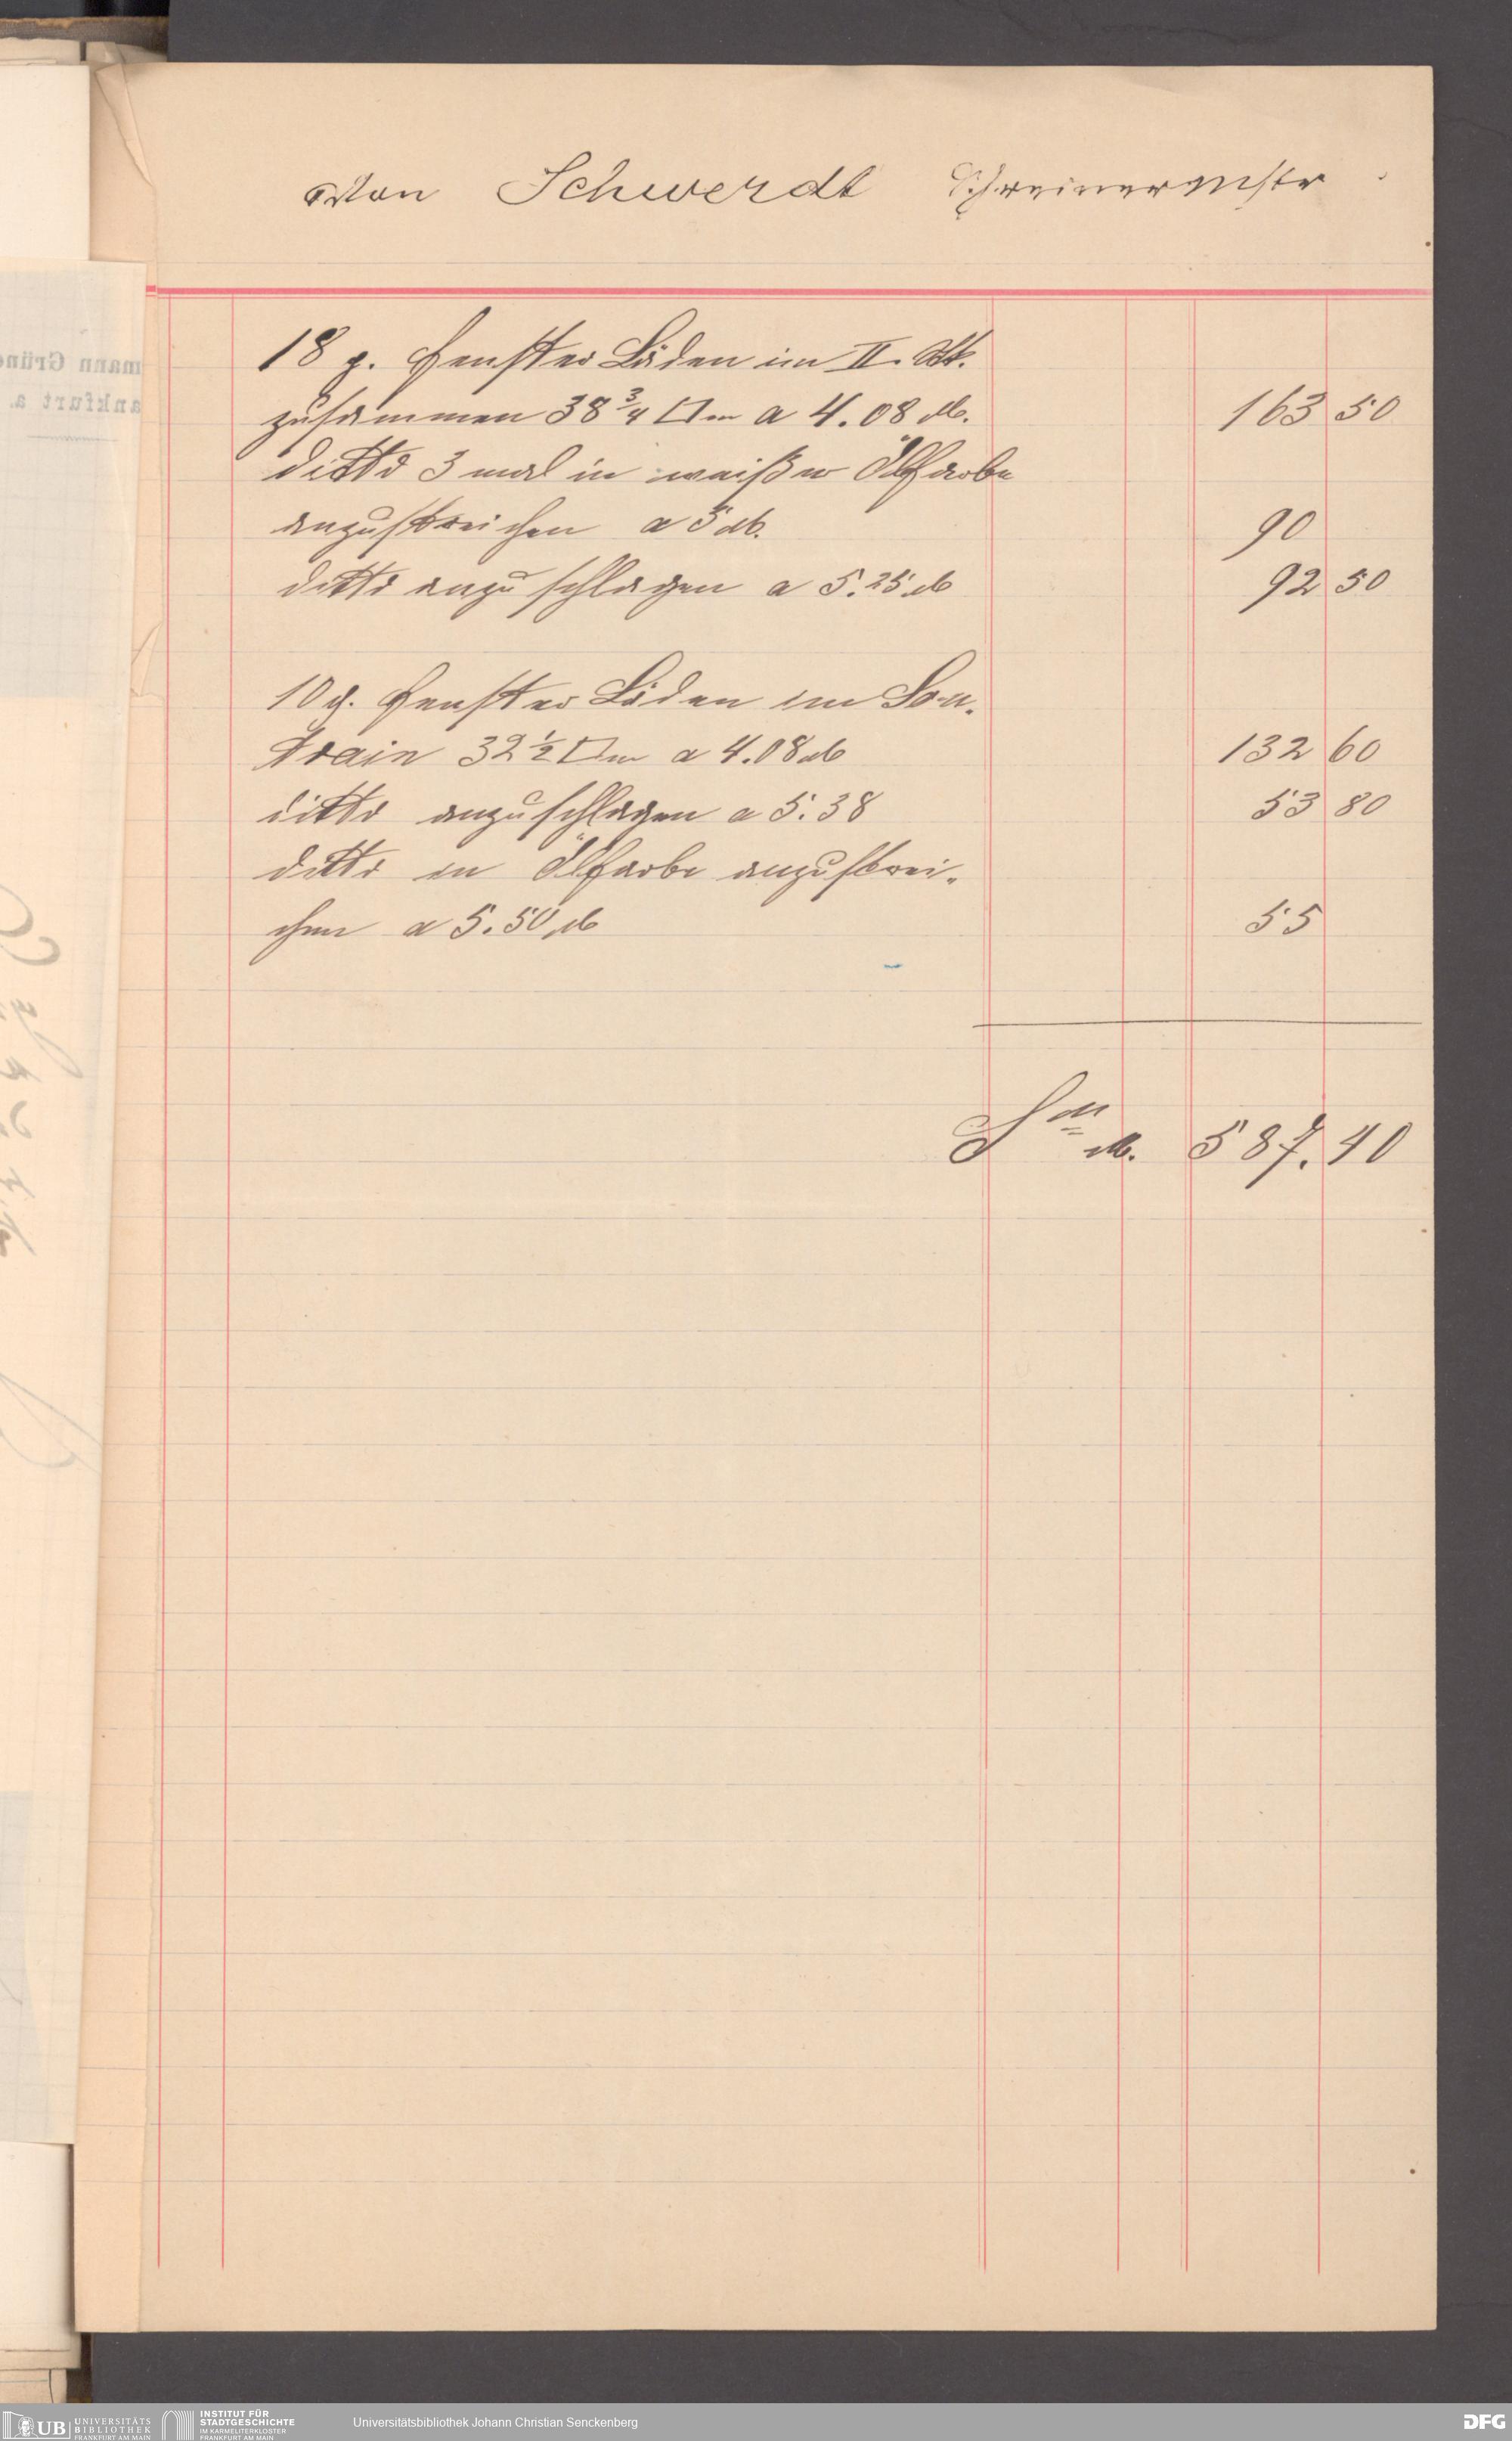 Von Schwerdt Schreinermstr
18 g. Fenster Läden im II. Stk.
zusammen 38 3/4 □m a 4.08 M. 163 50
ditto 3 mal in weißer Ölfarbe
anzustreichen a 5 M. 90
ditto anzuschlagen a 5.25 M 92 50
10 g. Fenster Läden im Sou-
train 32 1/2 □m a 4.08 M 132 60
ditto anzuschlagen a 5.38 53 80
ditto in Ölfarbe anzustrei-
chen a 5.50 M 55
Sa M. 587.40
mann Grüne
ankfurt a.
UB UNIVERSITÄTS
BIBLIOTHEK
FRANKFURT AM MAIN
INSTITUT FÜR
STADTGESCHICHTE
IM KARMELITERKLOSTER
FRANKFURT AM MAIN
Universitätsbibliothek Johann Christian Senckenberg
DFG